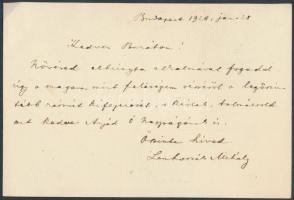 Budapest 1924. jan. 28
Kedves Barátom!
Nővéred elhunyta alkalmával fogadd
úgy a magam, mint feleségem részéről a legőszin-
tébb részvét kifejezését, s kérlek, tolmácsold
azt kedves Anyád Ő Nagyságának is.
Őszinte híved
Lenhossék Mihály